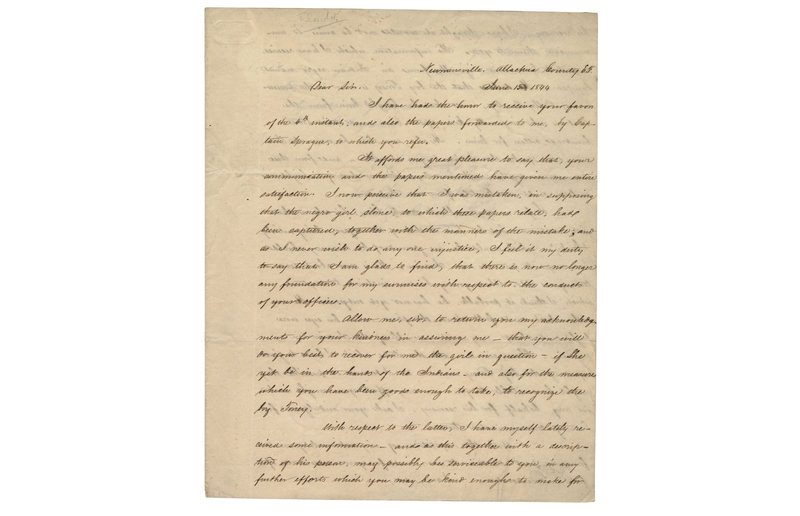 Newnansville. Allachua County E.F.
June 15th 1844
Dear Sir.
I have had the honor to receive your favor
of the 6th instant, and also the papers forwarded to me, by Cap-
tain Sprague, to which you refer.
It affords me great pleasure to say that, your
communication and the papers mentioned have given me entire
satisfaction. I now perceive that I was mistaken, in supposing
that the negro girl, to which these papers relate, had
been captured, together with the manner of the mistake; and
as I never wish to do any one injustice, I feel it my duty
to say that I am glad to find, that there is now no longer
any foundation for my surmises with respect to the conduct
of your officers.
Allow me, sir, to return you my acknowledg-
ments for your kindness in assuring me — that you will
do your best to recover for me the girl in question — if she
yet be in the hands of the Indians — and also for the measures
which you have been good enough to take, to recognize the
boy Toney.
With respect to the latter, I have myself lately re-
ceived some information — and as this together with a descrip-
tion of his person, may possibly be serviceable to you in any
further efforts which you may be kind enough to make for